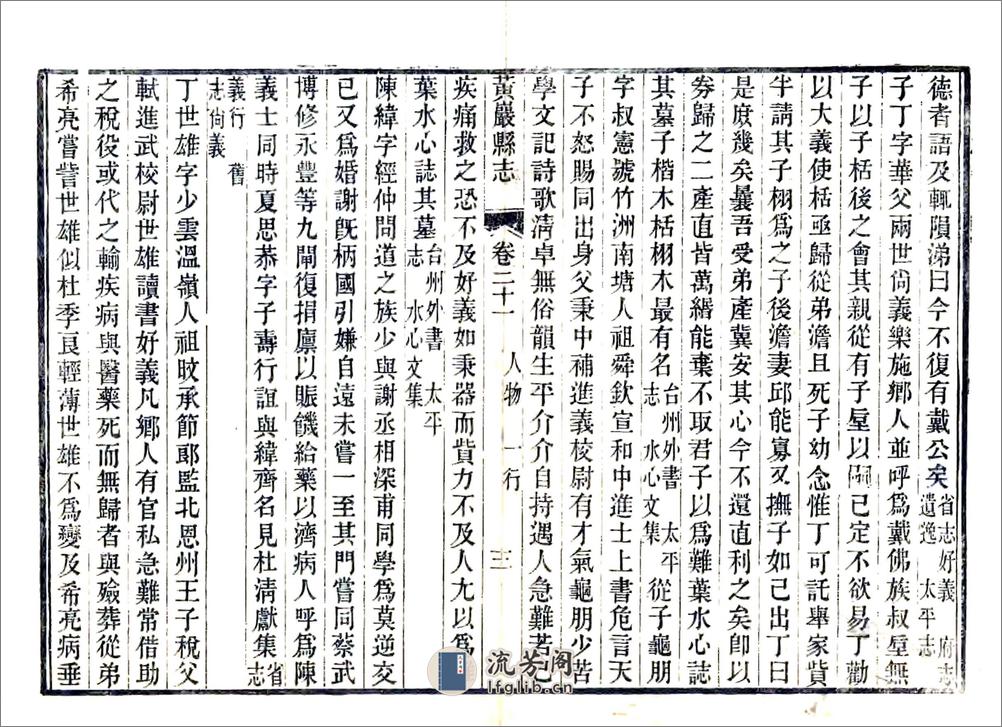 德者語及輒隕涕曰今不復有戴公矣省志好義 府志遺逸 太平志
子丁字華父兩世尙義樂施鄉人並呼爲戴佛族叔垕無
子以子栝後之會其親從有子垕以嗣已定不欲易丁勸
以大義使栝亟歸從弟澹且死子幼念惟丁可託舉家貲
半請其子栩爲之子後澹妻邱能寡叉撫子如己出丁曰
是庶幾矣曩吾受弟產冀安其心今不還直利之矣卽以
劵歸之二產直皆萬緡能棄不取君子以爲難葉水心誌
其墓子楷木栝栩木最有名台州外書 太平志 水心文集 從子龜朋
字叔憲號竹洲南塘人祖舜欽宣和中進士上書危言天
子不怒賜同出身父秉中補進義校尉有才氣龜朋少苦
學文記詩歌淸卓無俗韻生平介介自持遇人急難若己
黃巖縣志 卷二十一 人物 一行 三
疾痛救之恐不及好義如秉器而貲力不及人尢以爲
葉水心誌其墓台州外書 太平志 水心文集
陳緯字經仲問道之族少與謝丞相深甫同學爲莫逆交
已又爲婚謝旣柄國引嫌自遠未嘗一至其門嘗同蔡武
博修永豐等九閘復捐廩以賑饑給藥以濟病人呼爲陳
義士同時夏思恭字子壽行誼與緯齊名見杜淸獻集省志
義行 舊志尙義
丁世雄字少雲溫嶺人祖旼承節郞監北恩州王子稅父
軾進武校尉世雄讀書好義凡鄉人有官私急難常借助
之稅役或代之輸疾病與醫藥死而無歸者與殮葬從弟
希亮嘗訾世雄似杜季良輕薄世雄不爲變及希亮病垂
流芳阁
lfglib.cn